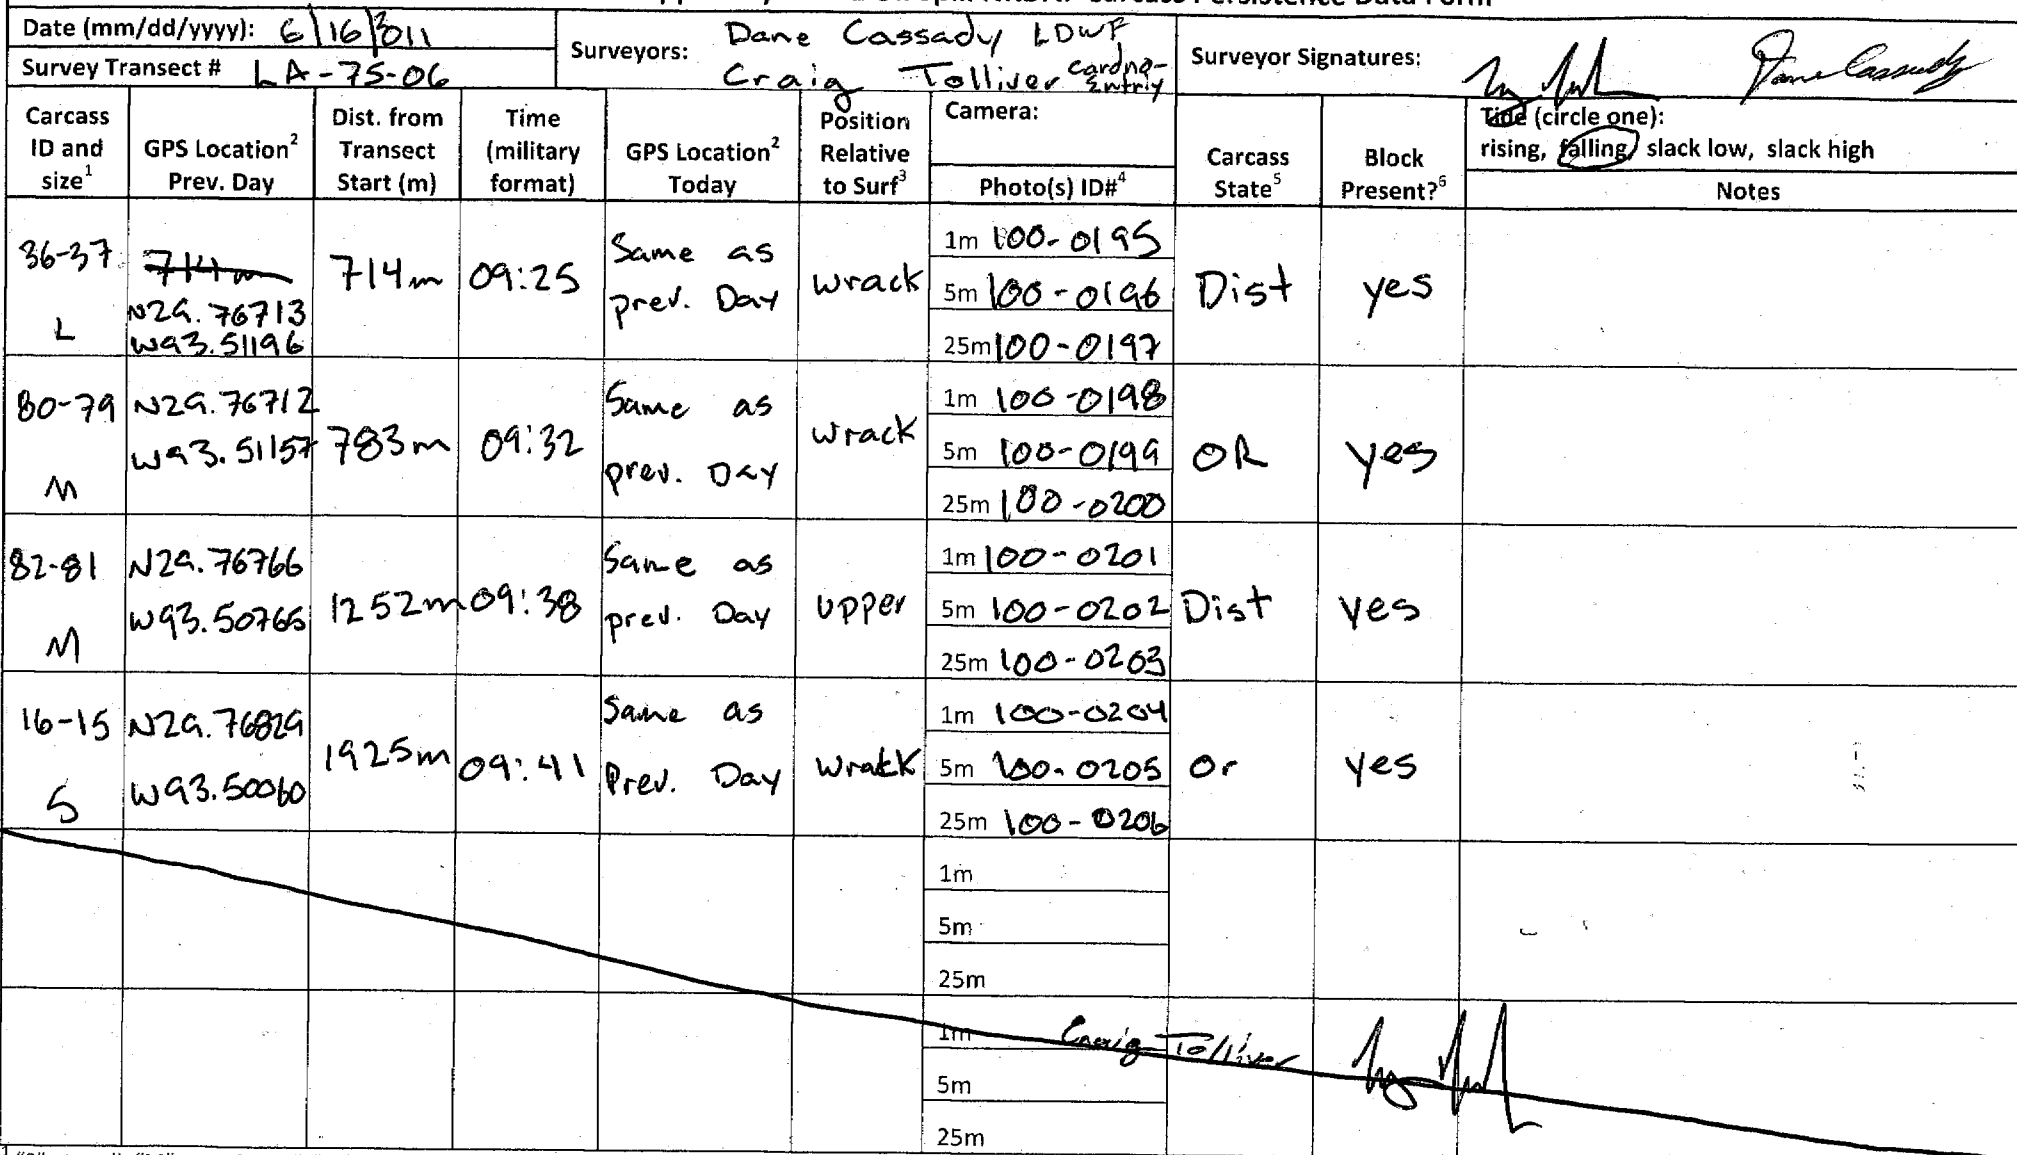 Carcass Persistence Data Form
Date (mm/dd/yyyy): 6/16/2011
Survey Transect # LA-75-06
Surveyors: Dane Cassady LDWF
Craig Tolliver Cardno-
Entrix
Surveyor Signatures: Dane Cassady
Carcass ID and size1
GPS Location2 Prev. Day
Dist. from Transect Start (m)
Time (military format)
GPS Location2 Today
Position Relative to Surf3
Camera:
Photo(s) ID#4
Carcass State5
Block Present?6
Tide (circle one):
rising, falling, slack low, slack high
Notes
36-37
L
714m
N29.76713
W93.51196
714m
09:25
Same as
prev. Day
wrack
1m 100-0195
5m 100-0196
25m 100-0197
Dist
yes
80-79
M
N29.76712
W93.51157
783m
09:32
Same as
prev. Day
wrack
1m 100-0198
5m 100-0199
25m 100-0200
OR
yes
82-81
M
N29.76766
W93.50765
1252m
09:38
Same as
prev. Day
upper
1m 100-0201
5m 100-0202
25m 100-0203
Dist
yes
16-15
S
N29.76829
W93.50060
1925m
09:41
Same as
Prev. Day
wrack
1m 100-0204
5m 100-0205
25m 100-0206
Or
yes
1m
5m
25m
1m
5m
25m
Craig Tolliver